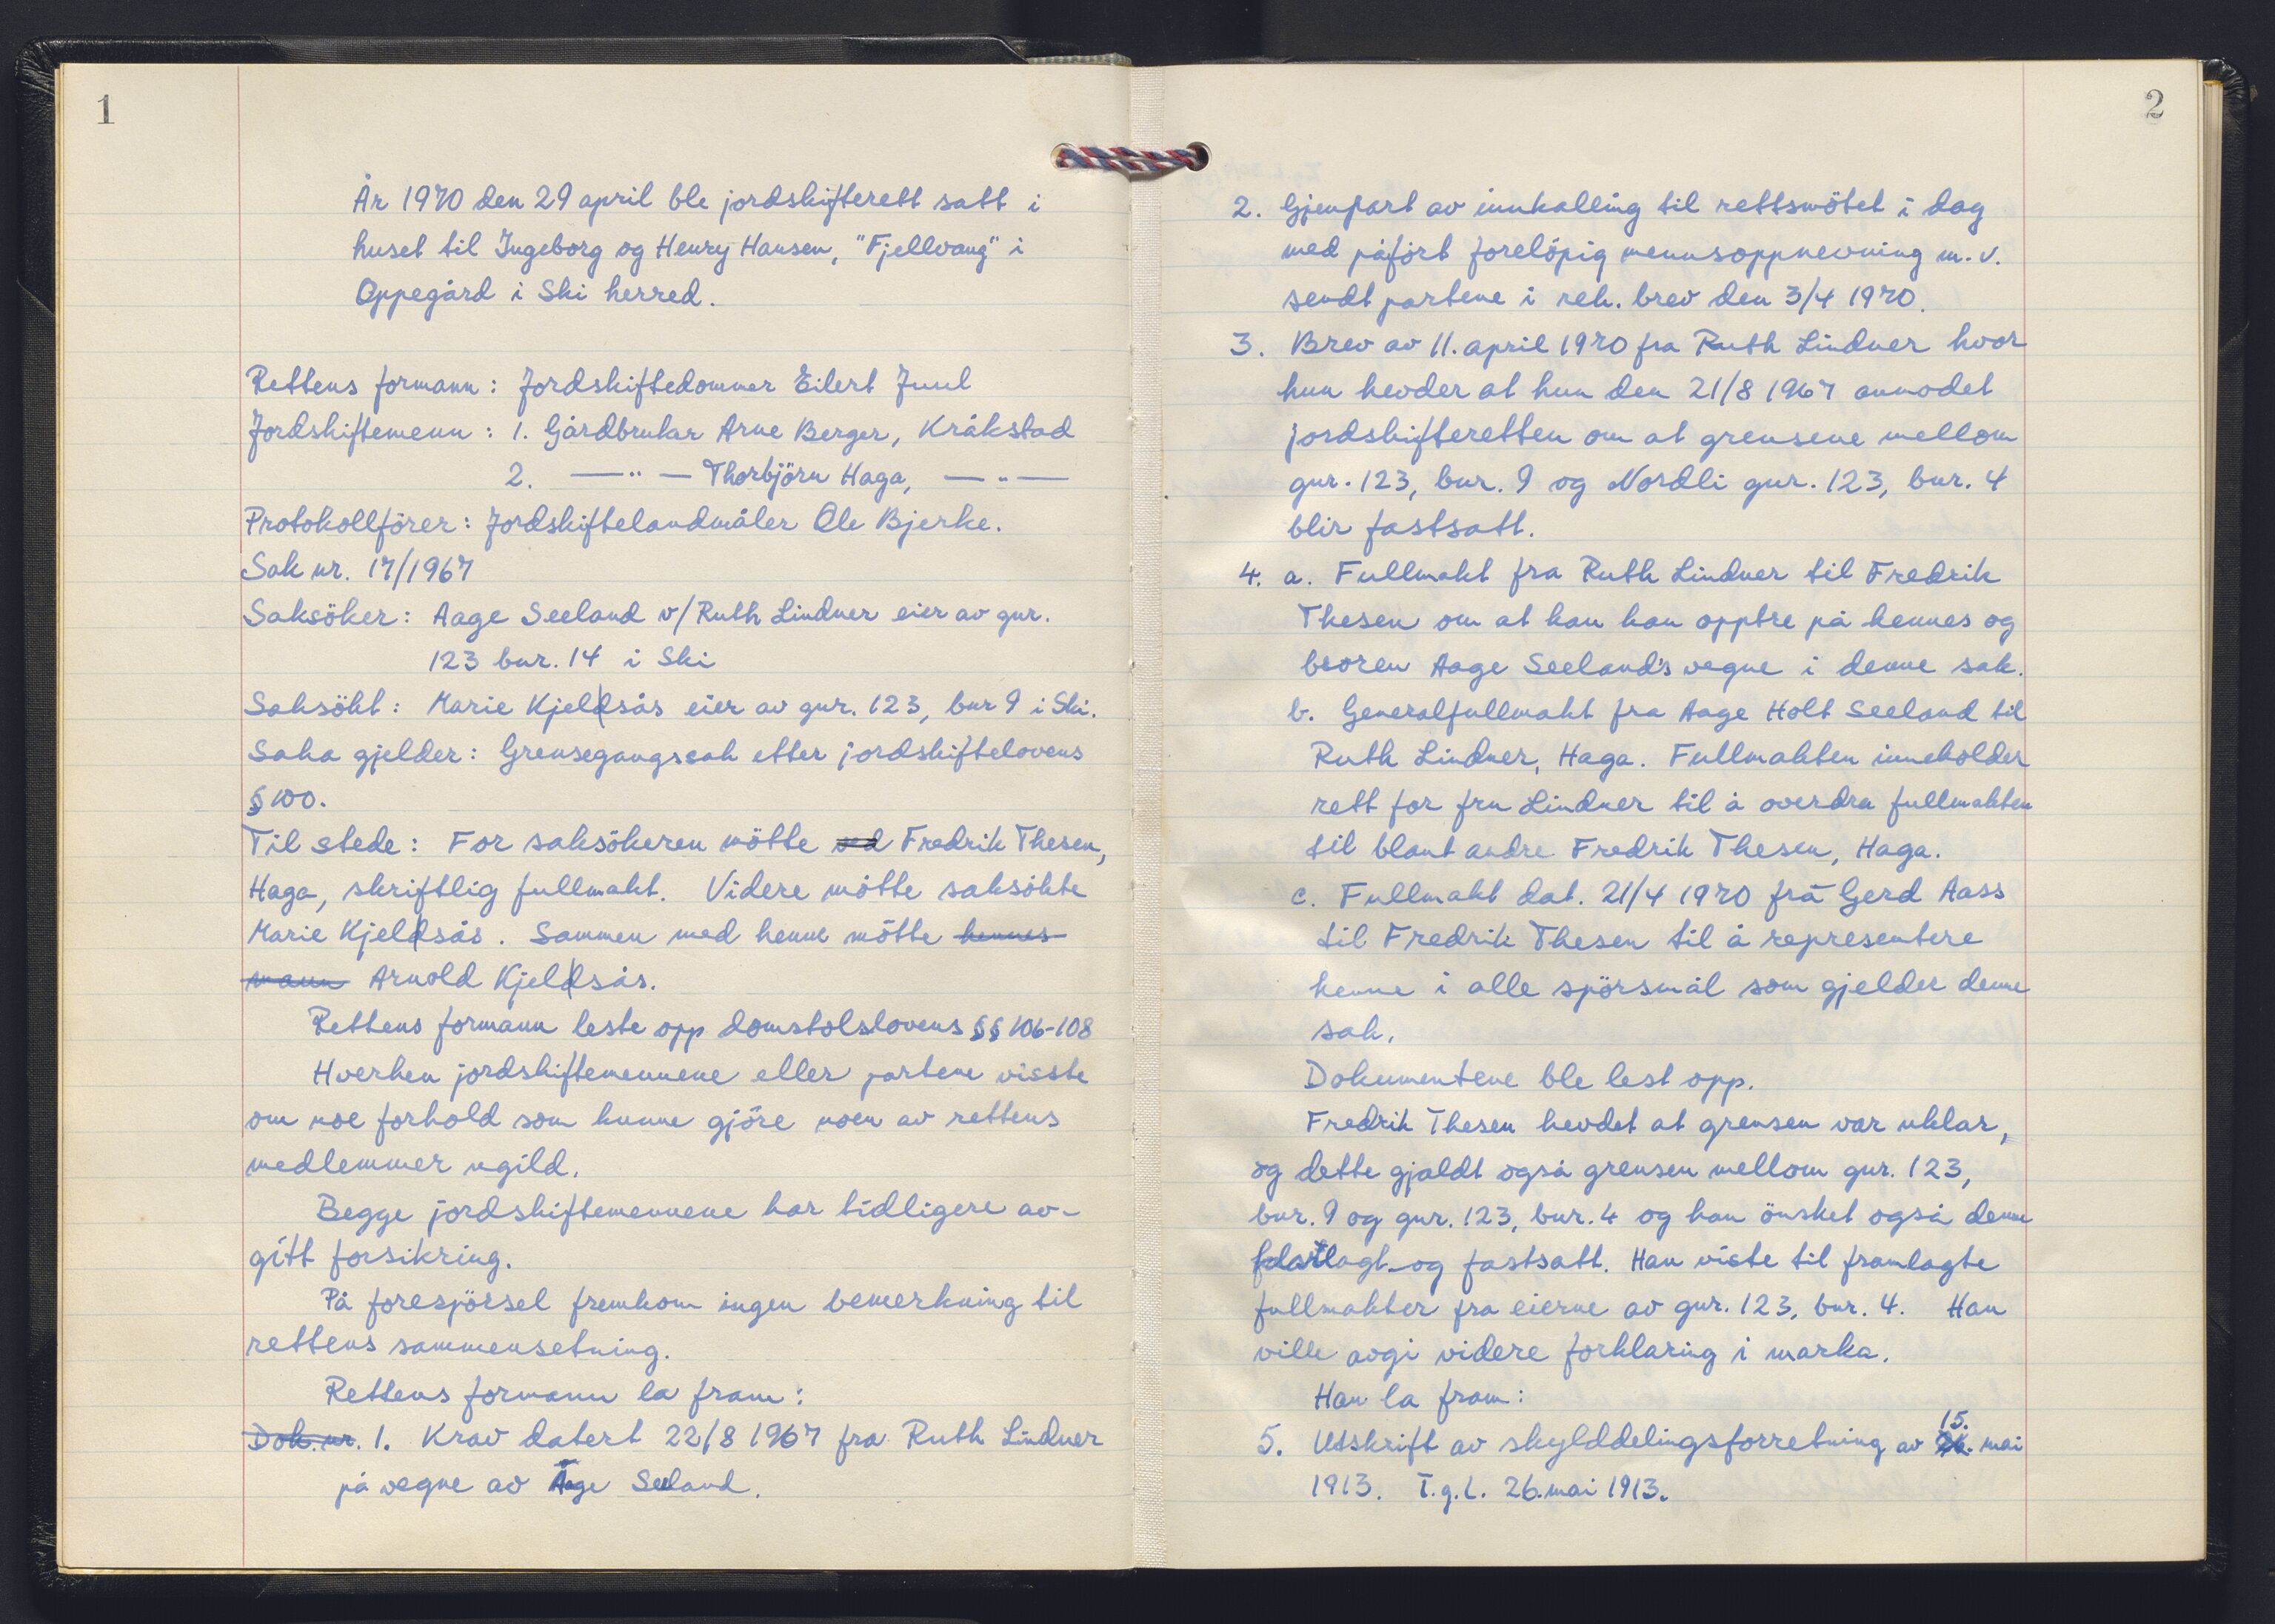 1
År 1970 den 29 april ble jordskifterett satt i
huset til Ingeborg og Henry Hansen, "Fjellvang" i
Oppegård i Ski herred.
Rettens formann: Jordskiftedommer Eilert Juul
Jordskiftemenn: 1. Gårdbruker Arne Berger, Kråkstad
2. —"— Thorbjörn Haga, —"—
Protokollförer: Jordskiftelandmåler Ole Bjerke.
Sak nr. 17/1967
Saksöker: Aage Seeland v/Ruth Lindner eier av gnr.
123 bnr. 14 i Ski
Saksökt: Marie Kjeldsås eier av gnr. 123, bnr 9 i Ski.
Saka gjelder: Grensegangssak etter jordskiftelovens
§ 100.
Til stede: For saksökeren mötte ved Fredrik Thesen,
Haga, skriftlig fullmakt. Videre mötte saksökte
Marie Kjeldsås. Sammen med henne mötte hennes
mann Arnold Kjeldsås.
Rettens formann leste opp domstolslovens §§ 106-108
Hverken jordskiftemennene eller partene visste
om noe forhold som kunne gjöre noen av rettens
medlemmer ugild.
Begge jordskiftemennene har tidligere av-
gitt forsikring.
På forespörsel fremkom ingen bemerkning til
rettens sammensetning.
Rettens formann la fram:
Dok. nr. 1. Krav datert 22/8 1967 fra Ruth Lindner
på vegne av Aage Seeland.
2
2. Gjenpart av innkalling til rettsmötet i dag
med påfört forelöpig mennsoppnevning m.v.
sendt partene i rek. brev den 3/4 1970.
3. Brev av 11. april 1970 fra Ruth Lindner hvor
hun hevder at hun den 21/8 1967 anmodet
jordskifteretten om at grensene mellom
gnr. 123, bnr. 9 og Nordli gnr. 123, bnr. 4
blir fastsatt.
4. a. Fullmakt fra Ruth Lindner til Fredrik
Thesen om at han kan opptre på hennes og
broren Aage Seeland's vegne i denne sak.
b. Generalfullmakt fra Aage Holt Seeland til
Ruth Lindner, Haga. Fullmakten inneholder
rett for fru Lindner til å overdra fullmakten
til blant andre Fredrik Thesen, Haga.
c. Fullmakt dat. 21/4 1970 frå Gerd Aass
til Fredrik Thesen til å representere
henne i alle spörsmål som gjelder denne
sak.
Dokumentene ble lest opp.
Fredrik Thesen hevdet at grensen var uklar,
og dette gjaldt også grensen mellom gnr. 123,
bnr. 9 og gnr. 123, bnr. 4 og han önsket også denne
og fastsatt. Han viste til framlagte
fullmakter fra eierne av gnr. 123, bnr. 4. Han
ville avgi videre forklaring i marka.
Han la fram:
15.
5. Utskrift av skylddelingsforretning av 26. mai
1913. T.g.l. 26. mai 1913.